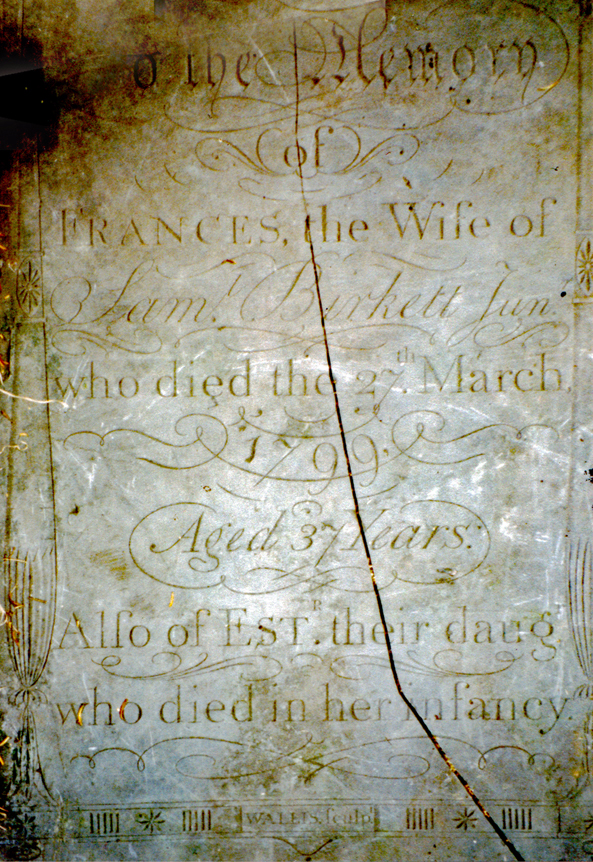 o the Memory
of
FRANCES, the Wife of
Samˡ. Birkett Junʳ.
who died the 27ᵗʰ. March,
1799,
Aged 37 Years.
Alſo of ESTᴿ. their daug
who died in her infancy.
WALLIS. ſculpᵗ